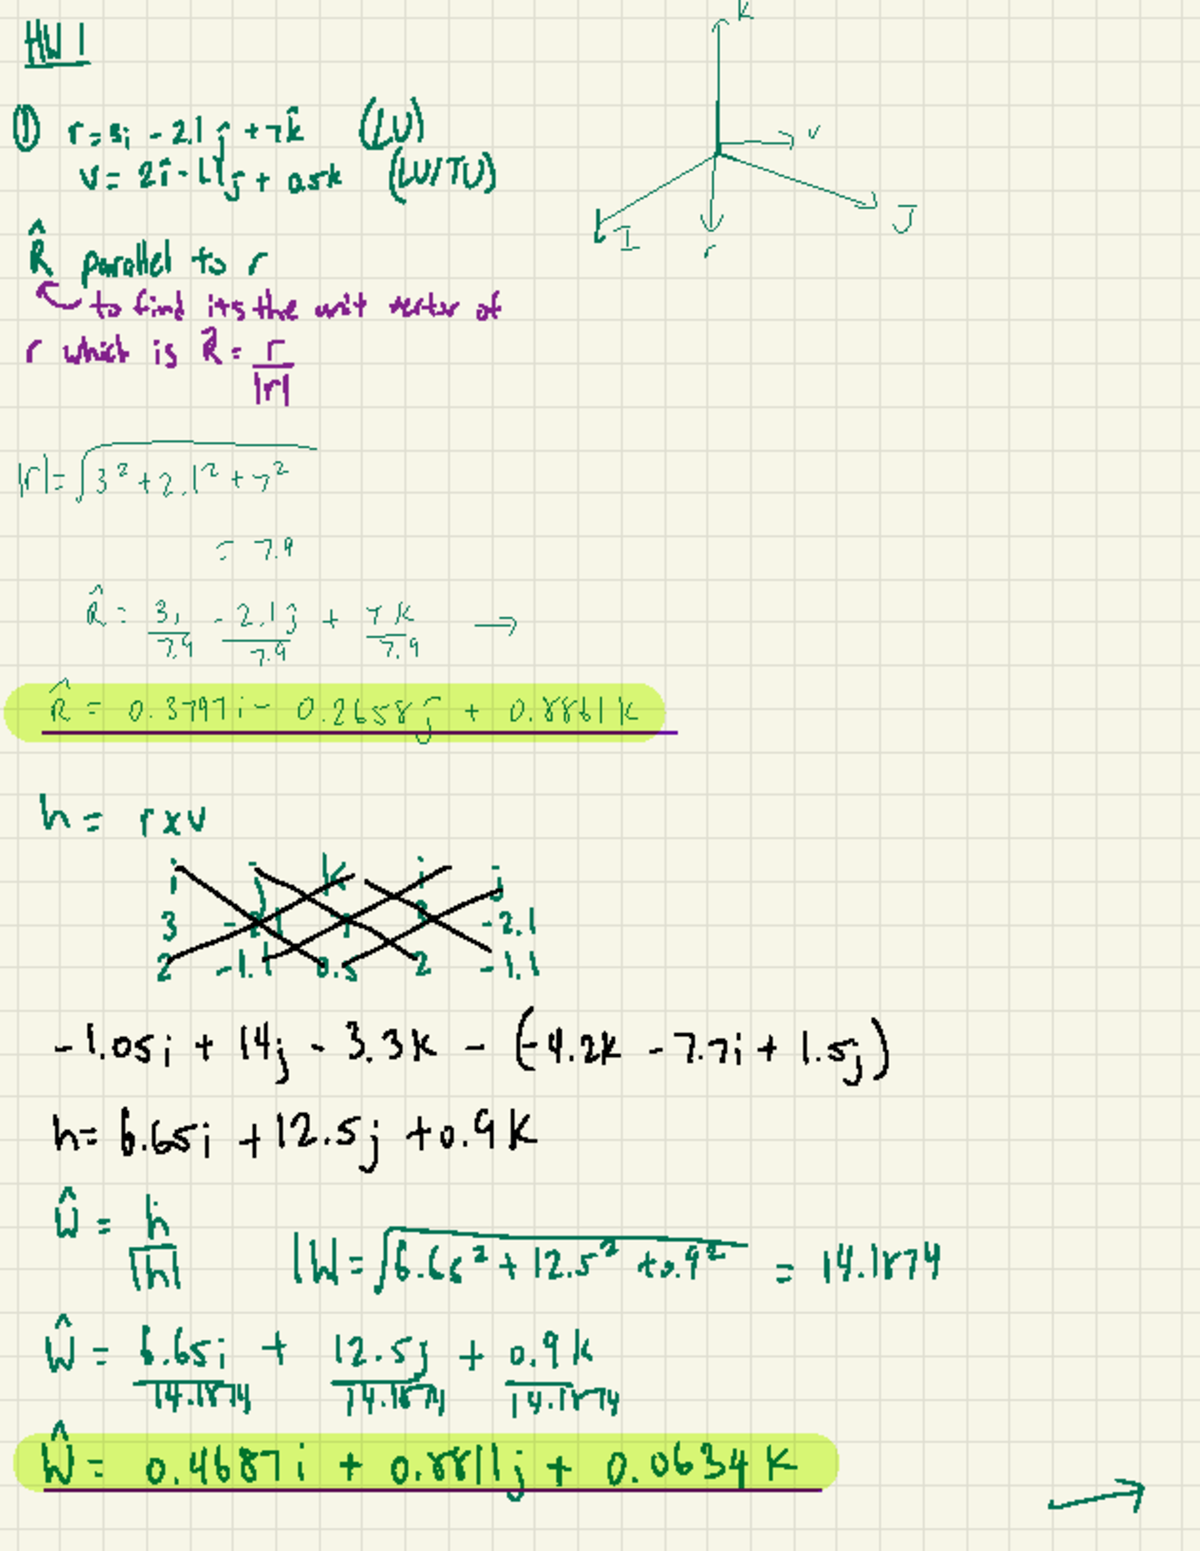 HW 1
K
① r = 3i - 2.1j + 7k̂ (LU)
v = 2i - 1.1j + 0.5k (LU/TU)
v
I
r
J
R̂ parallel to r
to find its the unit vector of
r which is R̂ = r/|r|
|r| = √(3² + 2.1² + 7²)
= 7.9
R̂ = 3i/7.9 - 2.1j/7.9 + 7k/7.9 →
R̂ = 0.3797i - 0.2658j + 0.8861k
h = r x v
i j k i j
3 -2.1 7 3 -2.1
2 -1.1 0.5 2 -1.1
-1.05i + 14j - 3.3k - (-4.2k - 7.7i + 1.5j)
h = 6.65i + 12.5j + 0.9k
Ŵ = h/|h| |h| = √(6.65² + 12.5² + 0.9²) = 14.1874
Ŵ = 6.65i/14.1874 + 12.5j/14.1874 + 0.9k/14.1874
Ŵ = 0.4687i + 0.8811j + 0.0634k
→